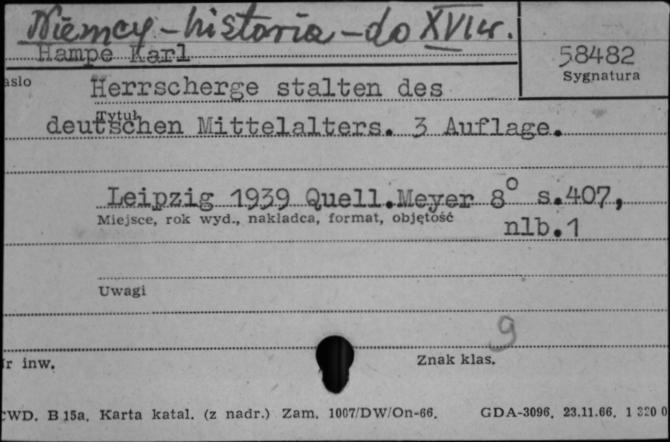 Niemcy - historia - do XVI w.
Hampe Karl
58482
Sygnatura
asło
Herrscherge stalten des
Tytuł
deutschen Mittelalters. 3 Auflage.
Leipzig 1939 Quell.Meyer 8° s.407,
Miejsce, rok wyd., nakładca, format, objętość
nlb.1
Uwagi
9
r inw.
Znak klas.
CWD. B 15a, Karta katal. (z nadr.) Zam. 1007/DW/On-66. GDA-3096, 23.11.66,